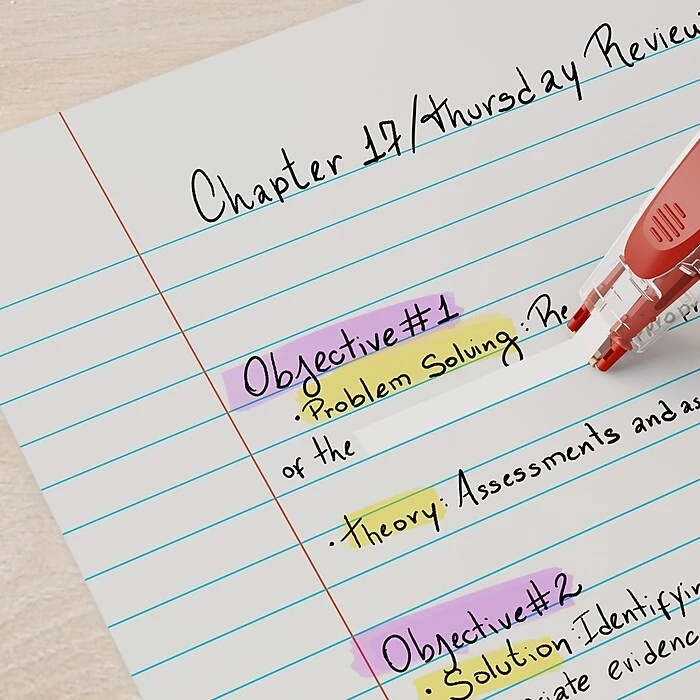 Chapter 17/Thursday Review
Objective #1
• Problem Solving: Re
or the
• Theory: Assessments and as
Objective #2
• Solution: Identifyin
ciate evidenc